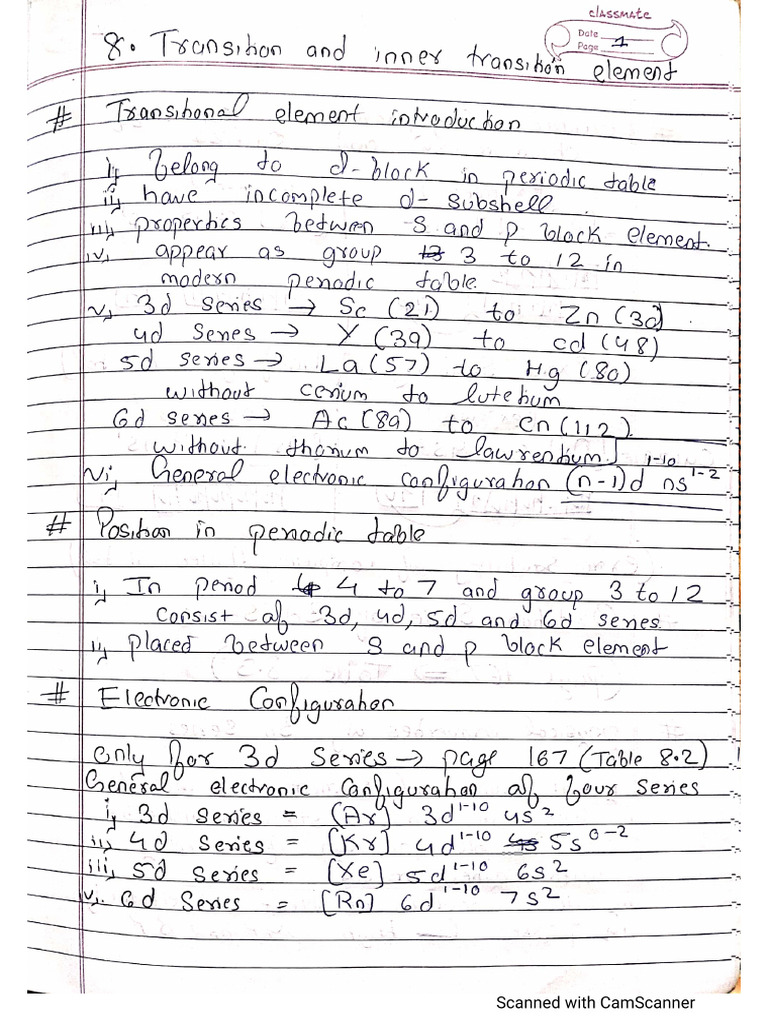 classmate
Date
Page 1
8. Transition and inner transition element
# Transitional element introduction
i, Belong to d-block in periodic table
ii, have incomplete d-subshell.
iii, properties between S and p block element.
iv, appear as group 3 to 12 in
modern periodic table.
v, 3d series → Sc (21) to Zn (30)
4d series → Y (39) to cd (48)
5d series → La (57) to Hg (80)
without cerium to lutetium
6d series → Ac (89) to Cn (112)
without thorium to lawrentium
vi, General electronic configuration (n-1)d¹⁻¹⁰ ns¹⁻²
# Position in periodic table
i, In period 4 to 7 and group 3 to 12
consist of 3d, 4d, 5d and 6d series
ii, placed between S and p block element
# Electronic Configuration
only for 3d series → page 167 (Table 8.2)
General electronic configuration of four series
i, 3d series = [Ar] 3d¹⁻¹⁰ 4s²
ii, 4d series = [Kr] 4d¹⁻¹⁰ 5s⁰⁻²
iii, 5d series = [Xe] 5d¹⁻¹⁰ 6s²
v. 6d series = [Rn] 6d¹⁻¹⁰ 7s²
Scanned with CamScanner